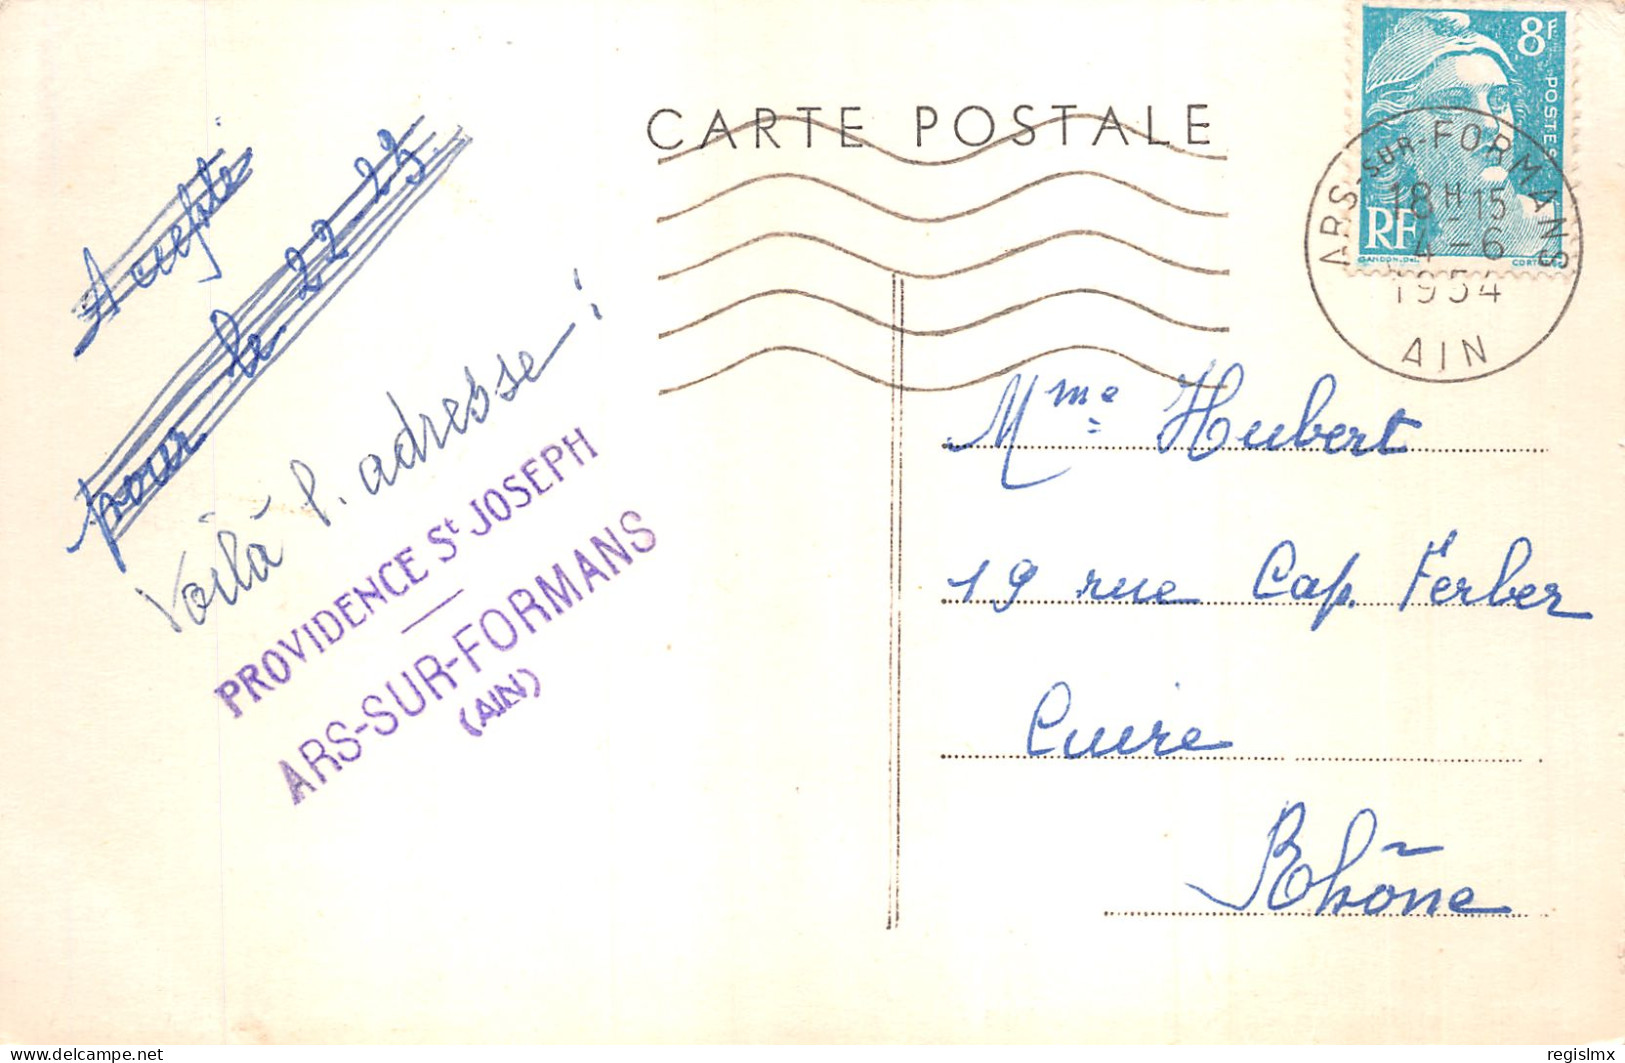 CARTE POSTALE
8F
POSTES
RF
GANDON.DEL.
ARS-SUR-FORMANS
18H15
4-6
1954
AIN
Accepté
pour le 22-23.
Voilà l'adresse :
PROVIDENCE St JOSEPH
ARS-SUR-FORMANS
(AIN)
Mme Hubert
19 rue Cap. Ferber
Cuire
Rhône
delcampe.net
regislmx